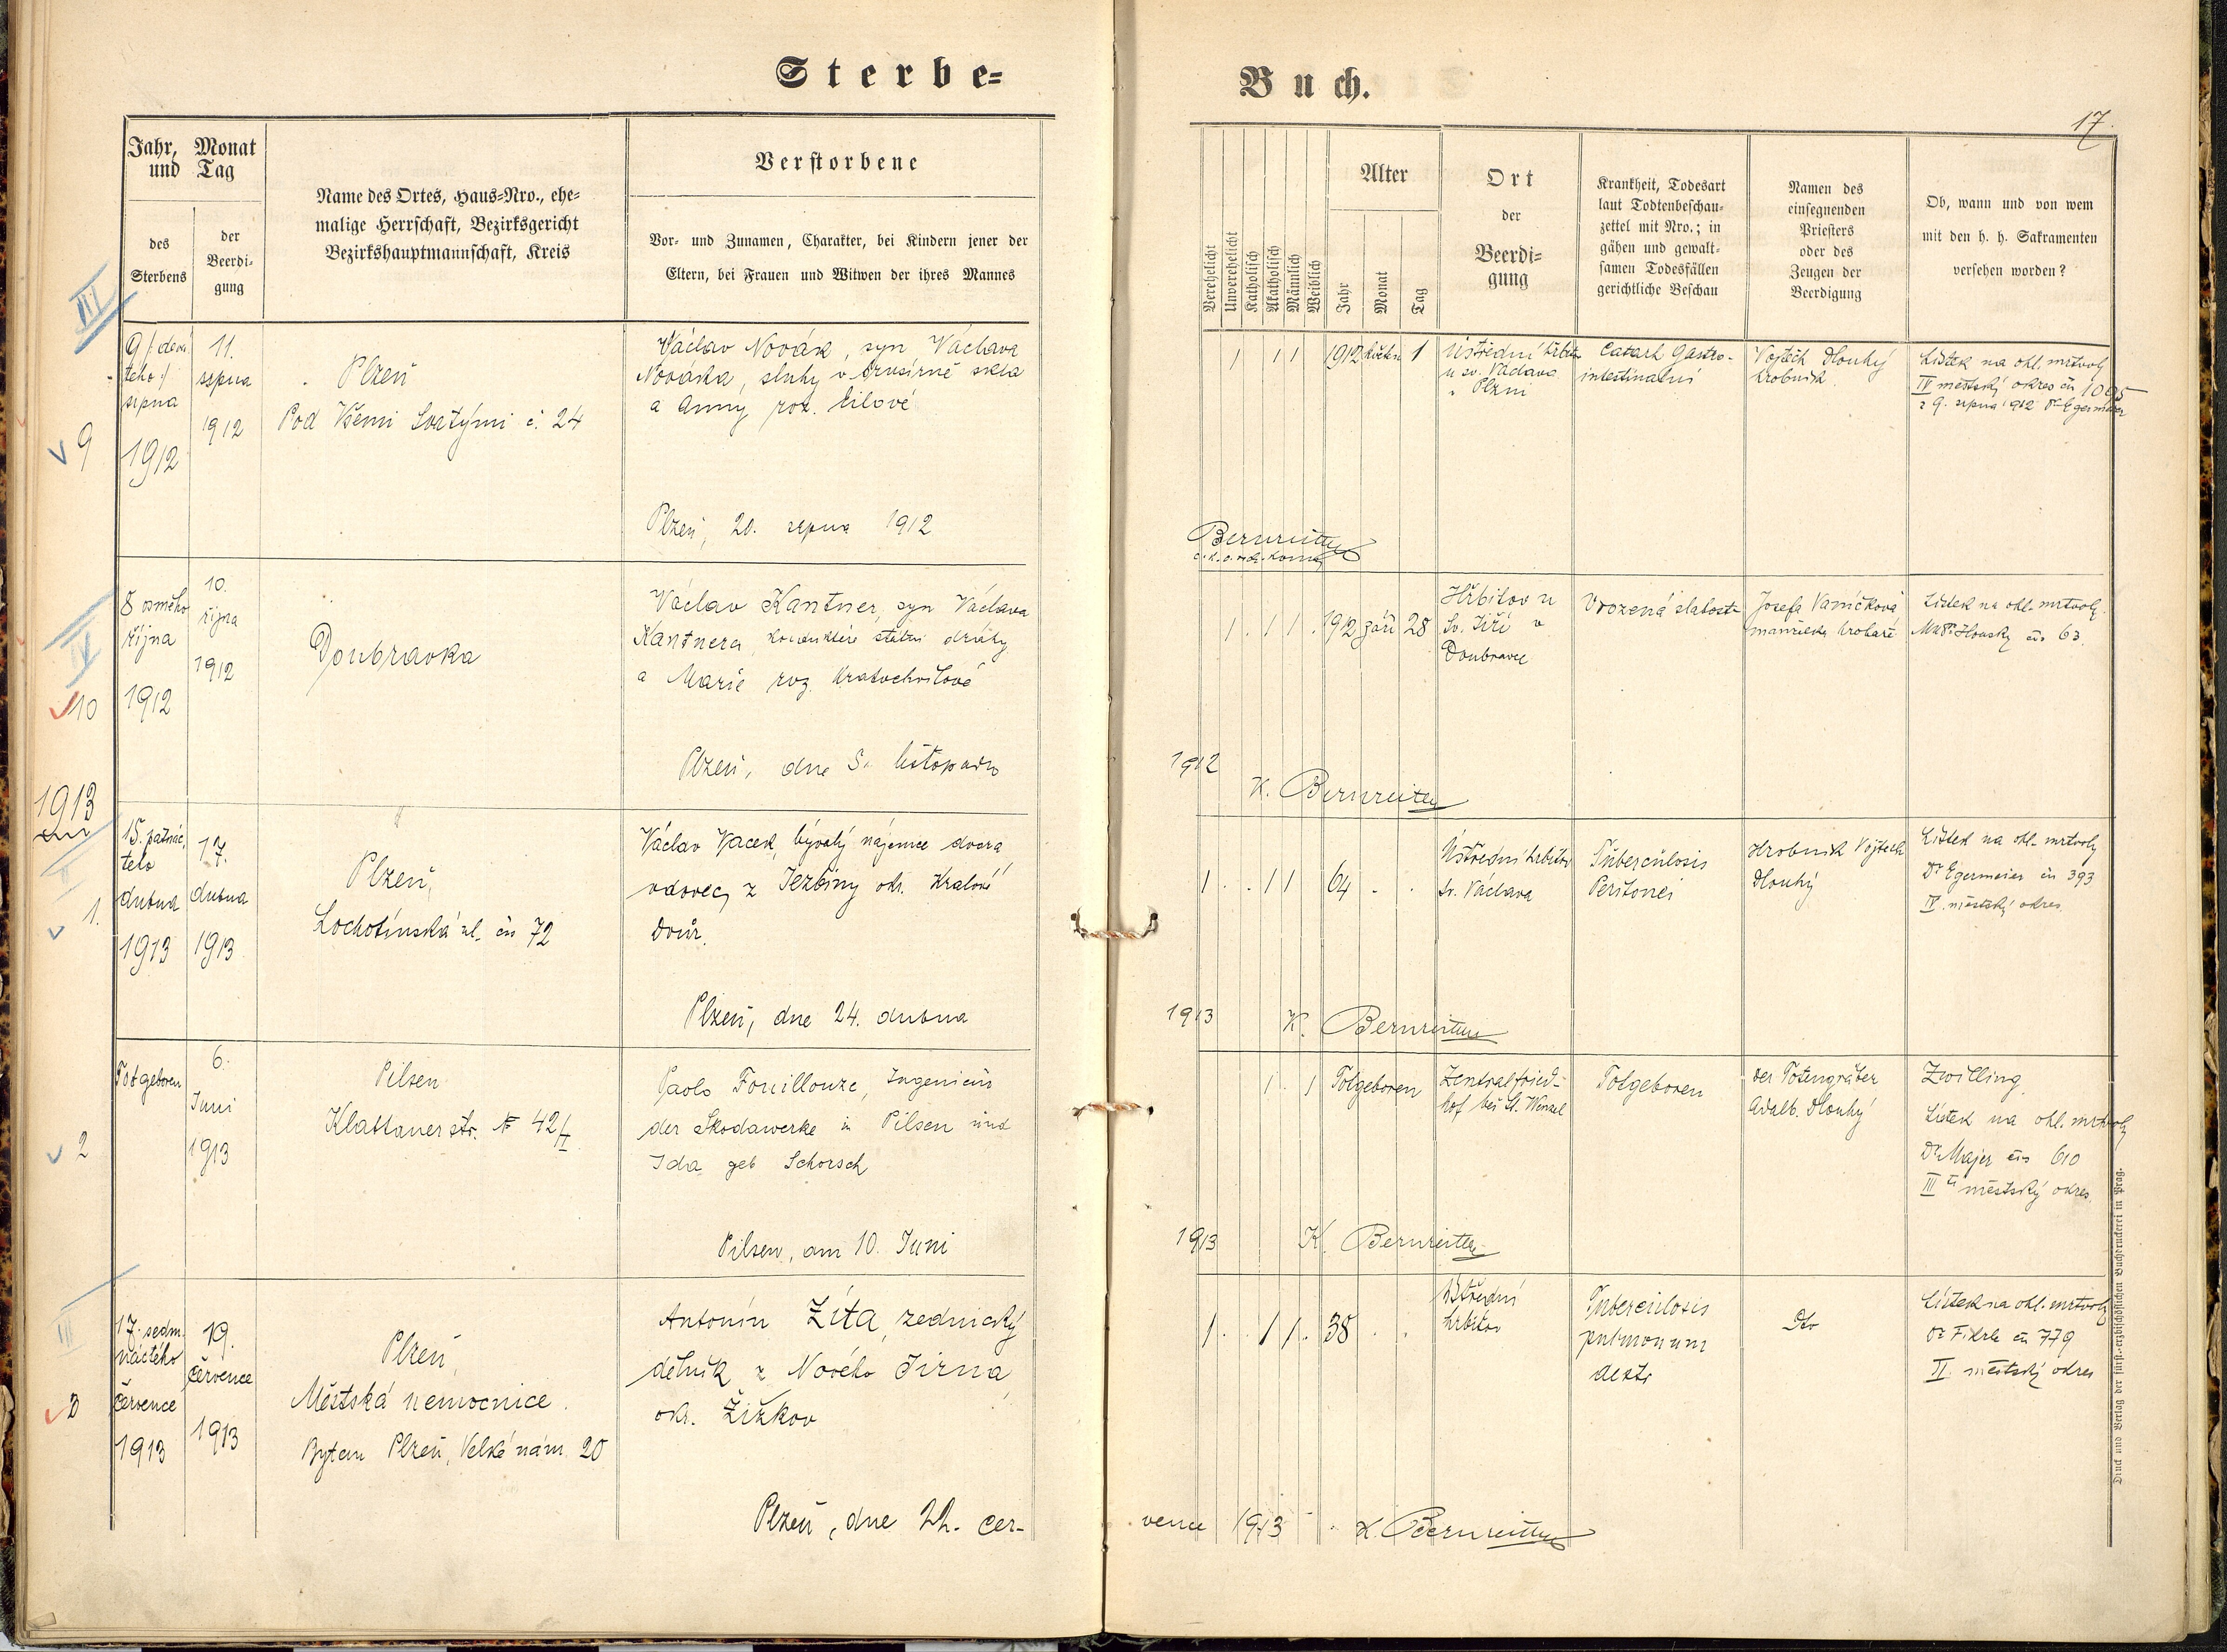 Sterbe-
Buch.
17.
Jahr, Monat
und Tag
des
Sterbens
der
Beerdi-
gung
Name des Ortes, Haus-Nro., ehe-
malige Herrschaft, Bezirksgericht
Bezirkshauptmannschaft, Kreis
Verstorbene
Vor- und Zunamen, Charakter, bei Kindern jener der
Eltern, bei Frauen und Witwen der ihres Mannes
Verehelicht
Unverehelicht
Katholisch
Akatholisch
Männlich
Weiblich
Alter
Jahr
Monat
Tag
Ort
der
Beerdi-
gung
Krankheit, Todesart
laut Todtenbeschau-
zettel mit Nro.; in
gähen und gewalt-
samen Todesfällen
gerichtliche Beschau
Namen des
einsegnenden
Priesters
oder des
Zeugen der
Beerdigung
Ob, wann und von wem
mit den h. h. Sakramenten
versehen worden?
III
9
9 /: devá
tého :/
srpna
1912
11.
srpna
1912
Plzeň
Pod Všemi Svatými č. 24
Václav Novák, syn Václava
Nováka, sluhy v brusírně skla
a Anny roz. Eilové
Plzeň, 20. srpna 1912
1 1 1 1912 květen 1
Ústřední hřbitov
u sv. Václava
v Plzni
Catarh Gastro-
intestinalní
Vojtěch Dlouhý
hrobník
Lístek na ohl. mrtvoly
IV městský okres čís 1095
z 9. srpna 1912 Dr Egermaier
Bernreiter
IV
10
8 osmého
října
1912
10.
října
1912
Doubravka
Václav Kantner, syn Václava
Kantnera, konduktéra státní dráhy
a Marie roz. Kratochvílové
Plzeň, dne 5. listopadu
1 . 1 1 . 1912 září 28
Hřbitov u
Sv. Jiří v
Doubravce
Vrozená slabost
Josefa Vaníčková
manželka hrobaře
Lístek na ohl. mrtvoly
MUDr. Hlouský čís 63.
1912
K. Bernreiter
1913
1.
15. patnác
tého
dubna
1913
17.
dubna
1913
Plzeň,
Lochotínská ul. čís 72
Václav Vacek, bývalý nájemce dvora
vdovec, z Jezbiny okr. Králové
Dvůr.
Plzeň, dne 24. dubna
1 . . 1 1 64 . .
Ústřední hřbitov
Sv. Václava
Tuberculosis
Peritonei
Hrobník Vojtěch
Dlouhý
Lístek na ohl. mrtvoly
Dr Egermeier čís 393
IV. městský okres.
1913
K. Bernreiter
2
Totgeboren
6.
Juni
1913
Pilsen
Klattauerstr. № 42
Paolo Fouillouze, Ingenieur
der Skodawerke in Pilsen und
Ida geb Schorsch
Pilsen, am 10. Juni
1 . 1 Totgeboren
Zentralfried-
hof bei St. Wenzel
Totgeboren
der Totengräber
Adalb. Dlouhý
Zwilling.
Lístek na ohl. mrtvoly
Dr Majer čís 610
III městský okres.
1913
K. Bernreiter
III
3
17. sedm
náctého
července
1913
19.
července
1913
Plzeň,
Městská nemocnice.
Bytem Plzeň, Velké nám. 20
Antonín Zíta, zednický
dělník z Nového Jirna,
okr. Žižkov
Plzeň, dne 22. čer-
1 . . 1 1 . 38 . .
Ústřední
hřbitov
Tuberculosis
pulmonum
dextr
Dto
Lístek na ohl. mrtvoly
Dr Fikrle čís 779
II. městský okres
vence 1913
K. Bernreiter
Druck und Verlag der fürst-erzbischöflichen Buchdruckerei in Prag.